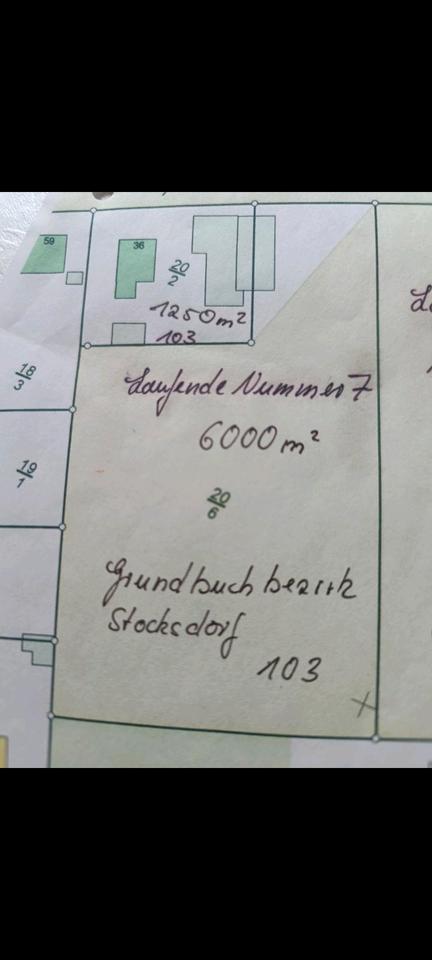 59
36
20/2
1250 m²
103
18/3
Laufende Nummer 7
6000 m²
19/1
20/6
Grundbuchbezirk
Stocksdorf
103